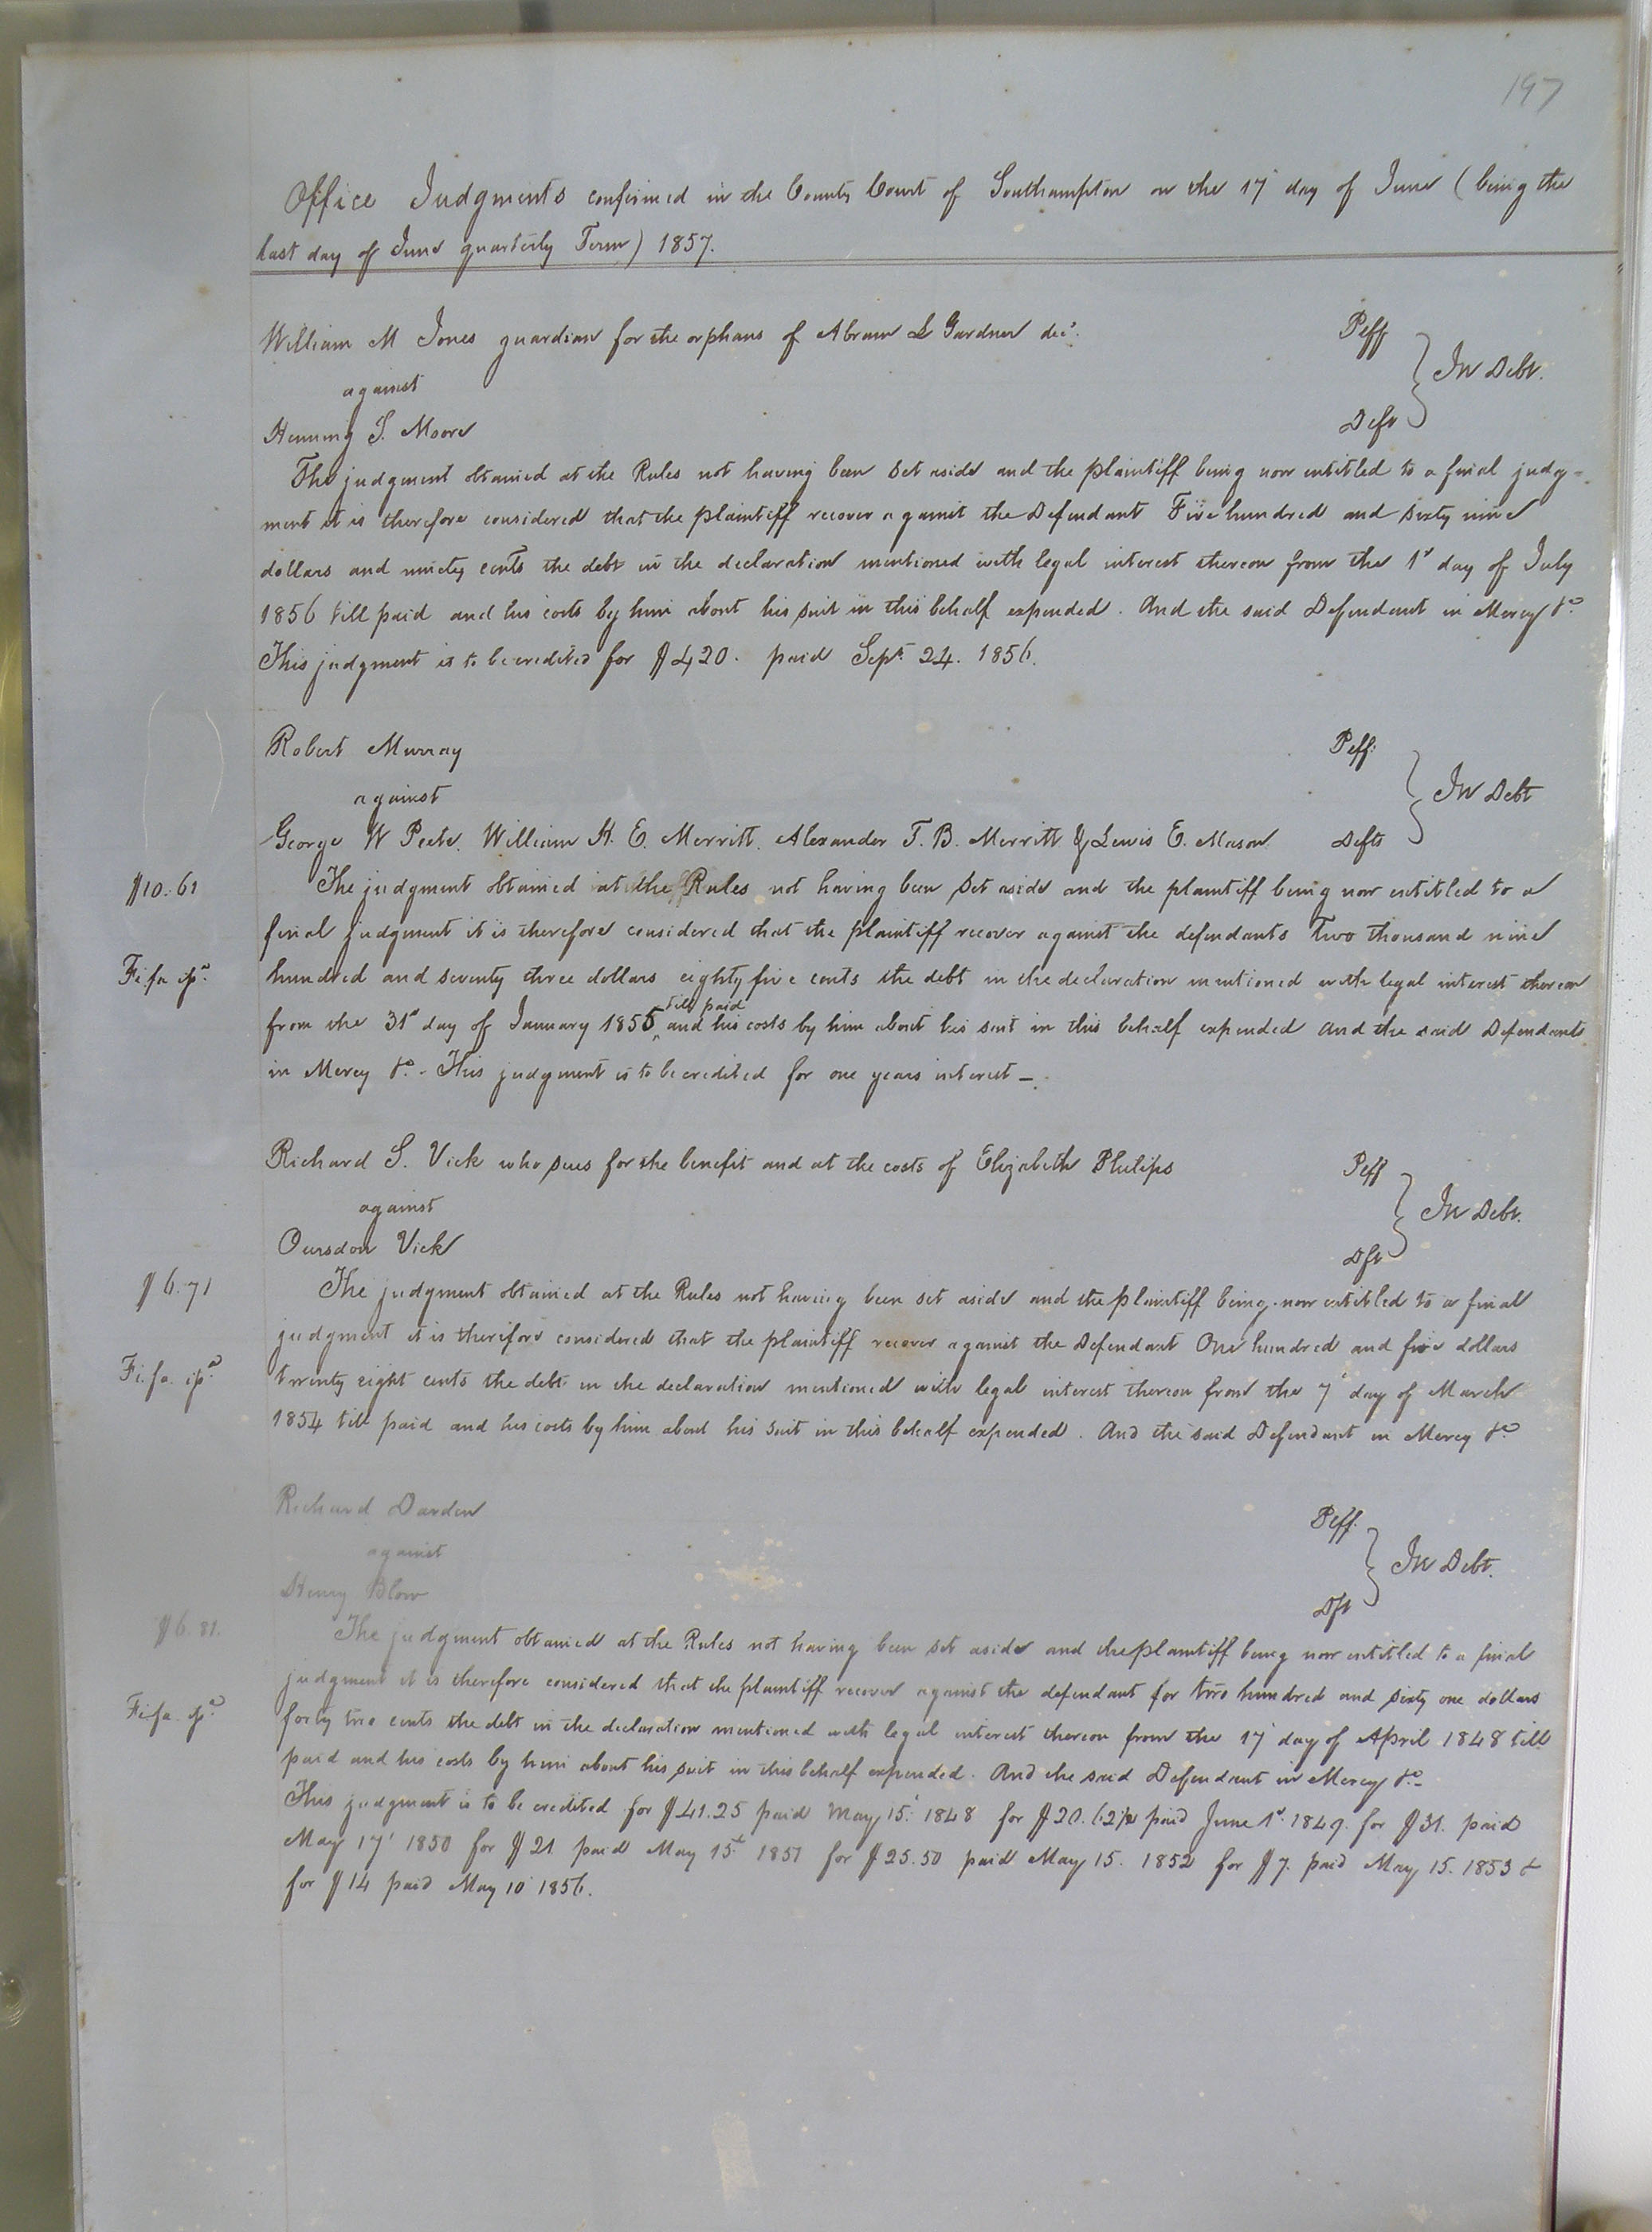 197
Office Judgments confirmed in the County Court of Southampton on the 17' day of June (being the
last day of June quarterly Term) 1857.
William M Jones guardian for the orphans of Abram L Gardner decd. Peff
against In Debt.
Henning S. Moore Deft
The judgment obtained at the Rules not having been set aside and the plaintiff being now entitled to a final judg-
ment it is therefore considered that the plaintiff recover against the Defendant Five hundred and sixty nine
dollars and ninety cents the debt in the declaration mentioned with legal interest thereon from the 1st day of July
1856 till paid and his costs by him about his suit in this behalf expended. And the said Defendant in Mercy &c.
This judgment is to be credited for $420. paid Sept 24. 1856.
Robert Murray Peff.
against In Debt
George W Peete. William H. E. Merritt. Alexander T. B. Merritt & Lewis E. Mason Defts
$10.61 The judgment obtained at the Rules not having been set aside and the plaintiff being now entitled to a
final judgment it is therefore considered that the plaintiff recover against the defendants Two thousand nine
Fi. fa. hundred and seventy three dollars eighty five cents the debt in the declaration mentioned with legal interest thereon
from the 31st day of January 1855 till paid and his costs by him about his suit in this behalf expended And the said Defendants
in Mercy &c. - This judgment is to be credited for one years interest -
Richard S. Vick who sues for the benefit and at the costs of Elizabeth Philips Peff
against In Debt.
Vick Dft
$6.71 The judgment obtained at the Rules not having been set aside and the plaintiff being now entitled to a final
judgment it is therefore considered that the plaintiff recover against the Defendant One hundred and five dollars
Fi. fa. twenty eight cents the debt in the declaration mentioned with legal interest thereon from the 7' day of March
1854 till paid and his costs by him about his suit in this behalf expended. And the said Defendant in Mercy &c
Richard Darden Peff.
against In Debt.
Henry Blow Dft
$6.81. The judgment obtained at the Rules not having been set aside and the plaintiff being now entitled to a final
judgment it is therefore considered that the plaintiff recover against the defendant for two hundred and sixty one dollars
Fi. fa. forty two cents the debt in the declaration mentioned with legal interest thereon from the 17' day of April 1848 till
paid and his costs by him about his suit in this behalf expended. And the said Defendant in Mercy &c -
This judgment is to be credited for $41.25 paid May 15' 1848 for $20.62½ paid June 1st 1849. for $31. paid
May 17' 1850 for $21 paid May 15th 1851 for $25.50 paid May 15. 1852 for $7. paid May 15. 1853 &
for $14 paid May 10' 1856.